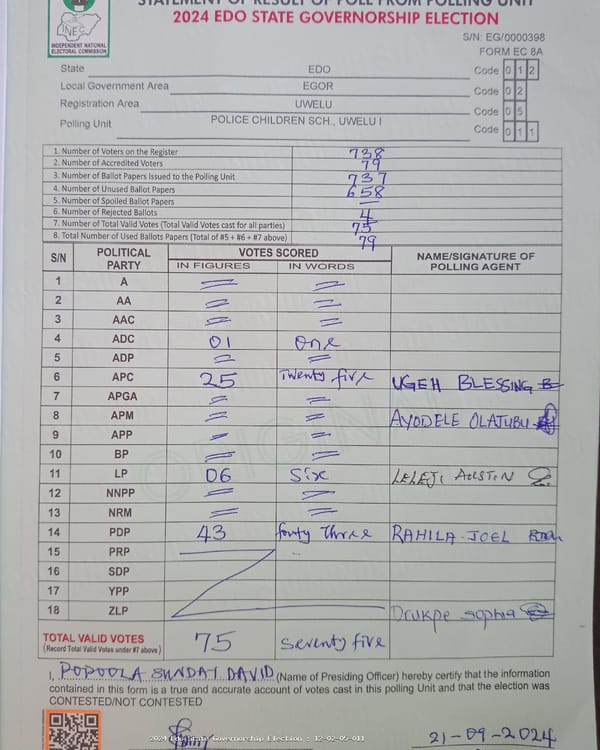 STATEMENT OF RESULT OF POLL FROM POLLING UNIT
2024 EDO STATE GOVERNORSHIP ELECTION
INEC
INDEPENDENT NATIONAL
ELECTORAL COMMISSION
S/N: EG/0000398
FORM EC 8A
State EDO Code 0 1 2
Local Government Area EGOR Code 0 2
Registration Area UWELU Code 0 5
Polling Unit POLICE CHILDREN SCH., UWELU I Code 0 1 1
1. Number of Voters on the Register 738
2. Number of Accredited Voters 79
3. Number of Ballot Papers Issued to the Polling Unit 737
4. Number of Unused Ballot Papers 658
5. Number of Spoiled Ballot Papers =
6. Number of Rejected Ballots 4
7. Number of Total Valid Votes (Total Valid Votes cast for all parties) 75
8. Total Number of Used Ballots Papers (Total of #5 + #6 + #7 above) 79
S/N POLITICAL PARTY VOTES SCORED NAME/SIGNATURE OF POLLING AGENT
IN FIGURES IN WORDS
1 A = =
2 AA = =
3 AAC = =
4 ADC 01 One
5 ADP = =
6 APC 25 Twenty five UGEH BLESSING
7 APGA = =
8 APM = = AYODELE OLATUBU
9 APP = =
10 BP = =
11 LP 06 Six LELEJI AUSTIN
12 NNPP = =
13 NRM = =
14 PDP 43 fourty Three RAHILA-JOEL
15 PRP
16 SDP
17 YPP
18 ZLP Drukpe sophia
TOTAL VALID VOTES 75 Seventy five
(Record Total Valid Votes under #7 above)
I, POPOOLA SUNDAY DAVID (Name of Presiding Officer) hereby certify that the information
contained in this form is a true and accurate account of votes cast in this polling Unit and that the election was
CONTESTED/NOT CONTESTED
2024 Edo State Governorship Election : 12-02-05-011
21-09-2024